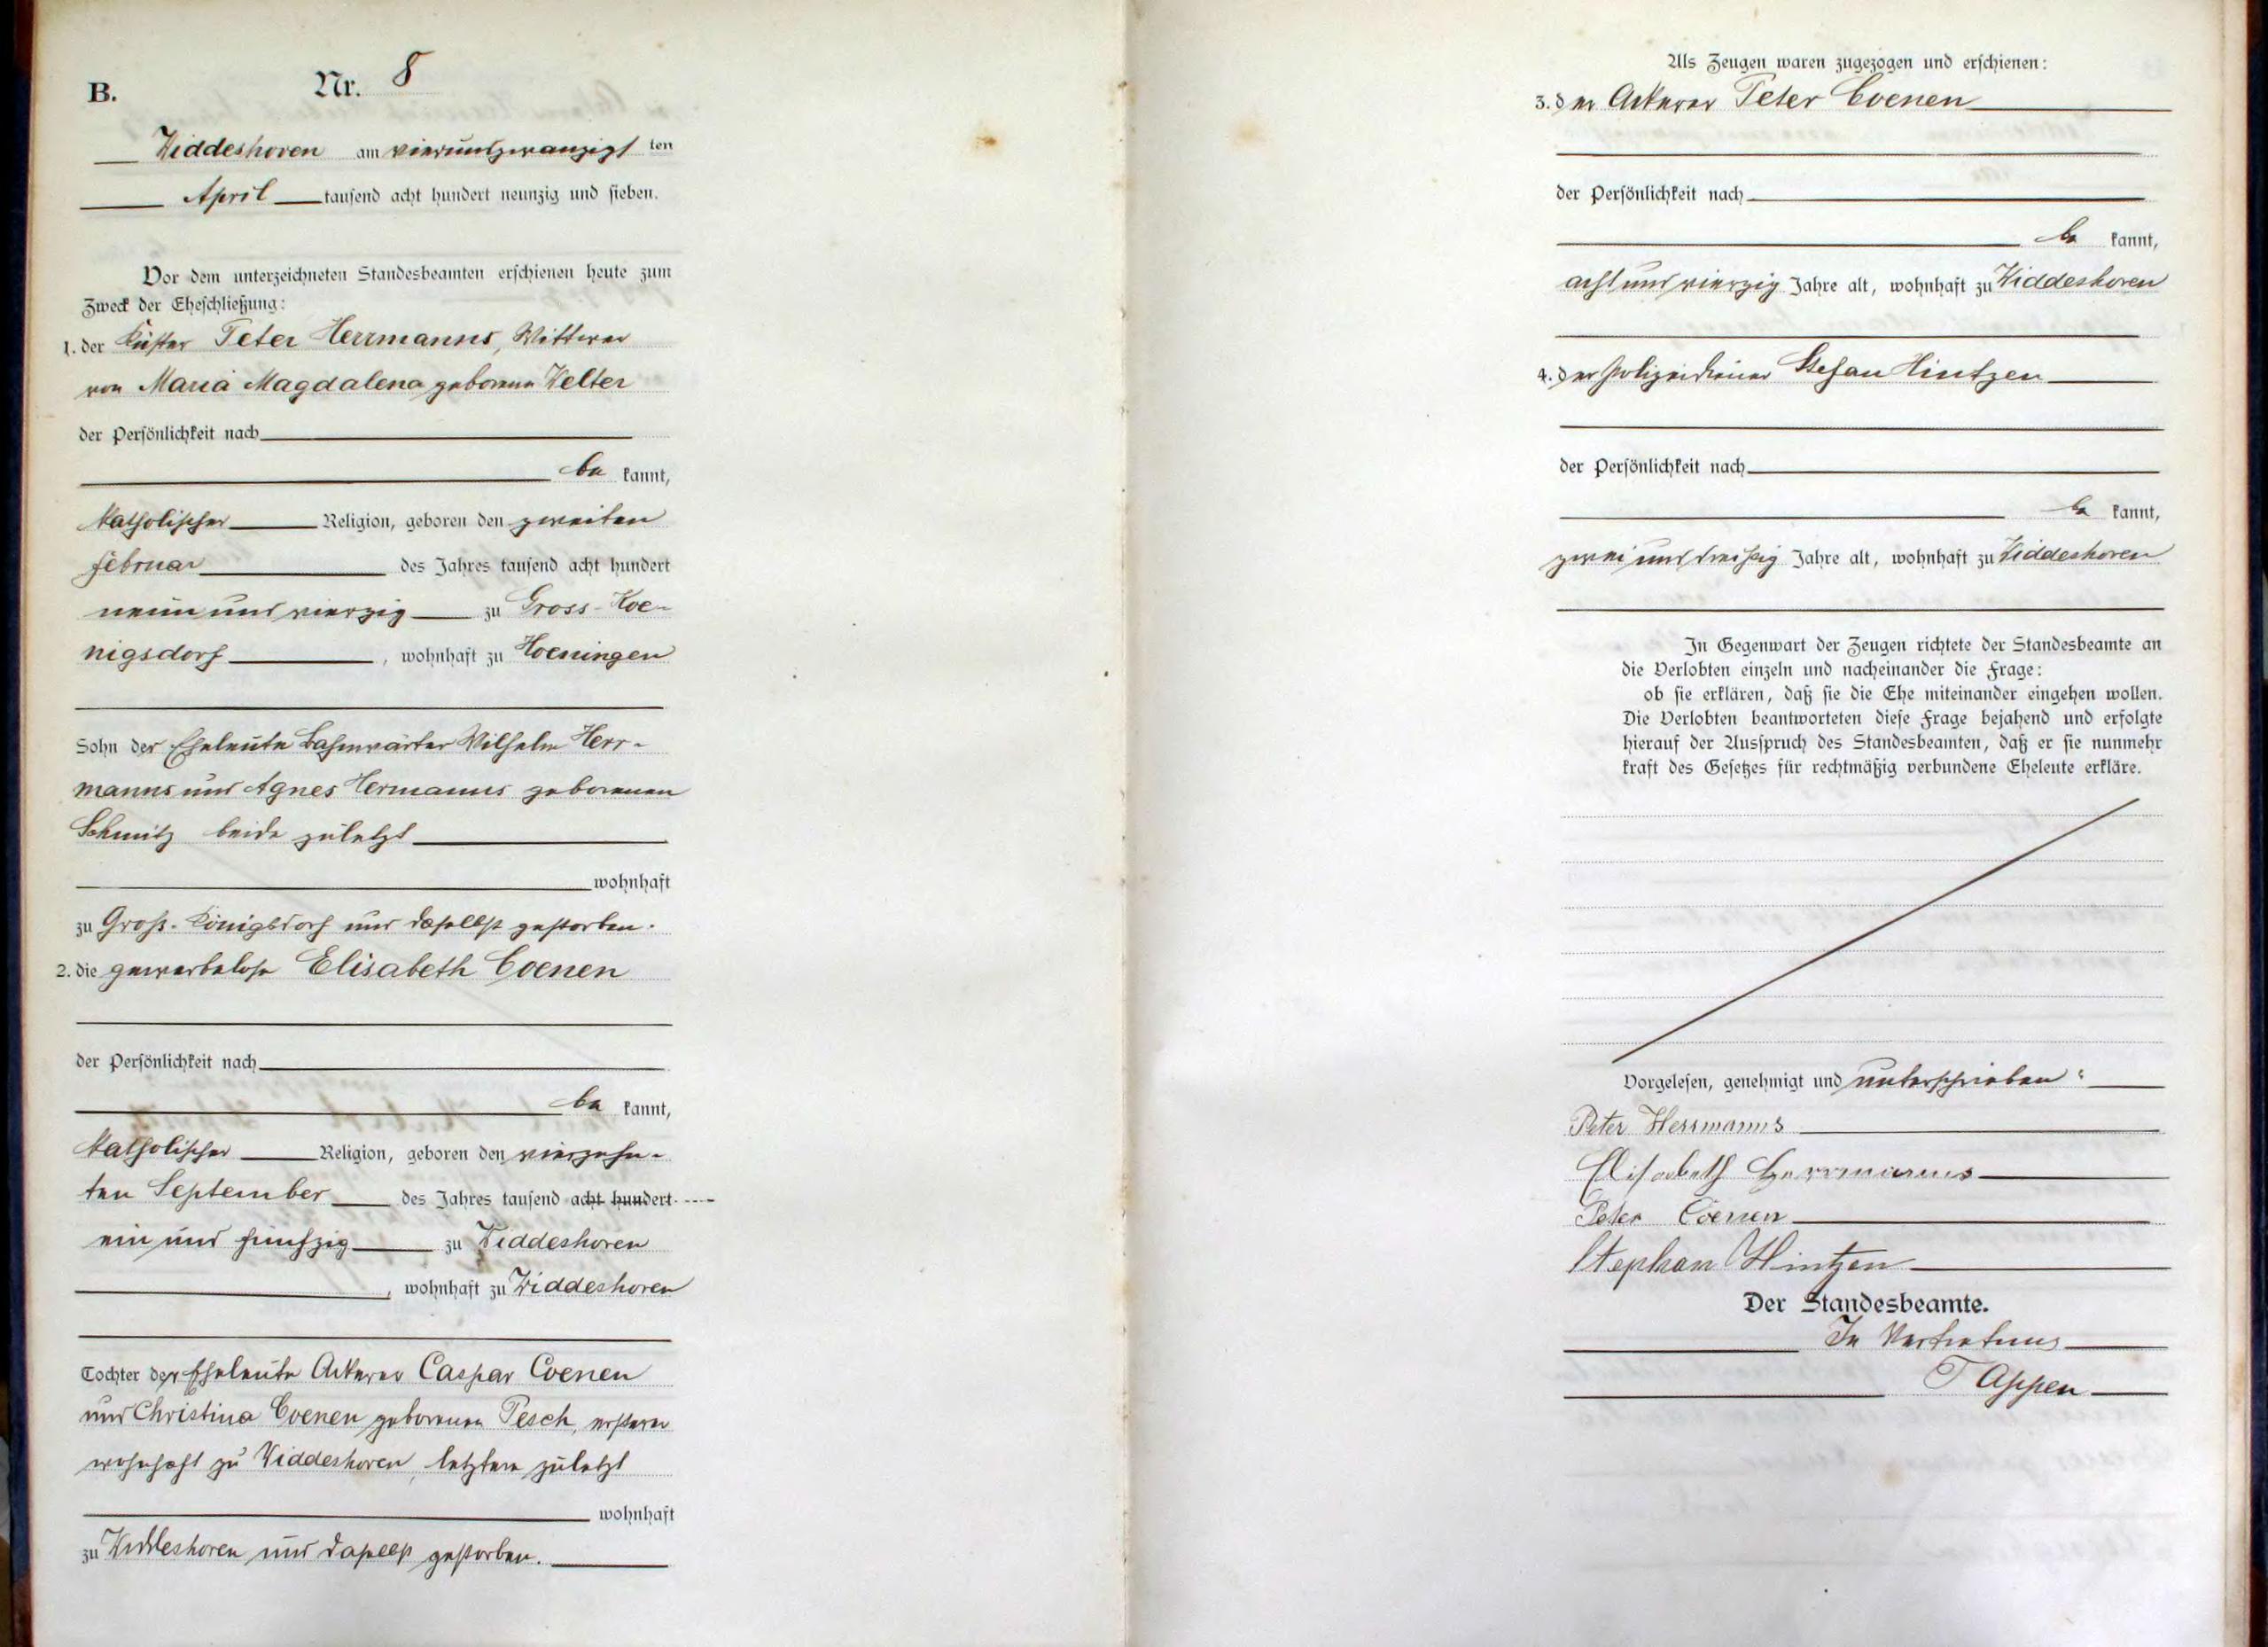 B. Nr. 8
Widdeshoven am vierundzwanzigsten
April tausend acht hundert neunzig und sieben.
Vor dem unterzeichneten Standesbeamten erschienen heute zum
Zweck der Eheschließung:
1. der Küster Peter Herrmanns, Wittwer
von Maria Magdalena geborene Velter
der Persönlichkeit nach
be kannt,
katholischer Religion, geboren den zweiten
Februar des Jahres tausend acht hundert
neun und vierzig zu Gross-Koe-
nigsdorf, wohnhaft zu Hoeningen
Sohn der Eheleute Bahnwärter Wilhelm Herr-
manns und Agnes Hermanns geborenen
Schmitz beide zuletzt
wohnhaft
zu Groß-Königsdorf und daselbst gestorben.
2. die gewerbelose Elisabeth Coenen
der Persönlichkeit nach
be kannt,
katholischer Religion, geboren den vierzehn-
ten September des Jahres tausend acht hundert
ein und fünfzig zu Widdeshoven
, wohnhaft zu Widdeshoven
Tochter der Eheleute Ackerer Caspar Coenen
und Christina Coenen geborenen Pesch, ersterer
wohnhaft zu Widdeshoven, letztere zuletzt
wohnhaft
zu Widdeshoven und daselbst gestorben.
Als Zeugen waren zugezogen und erschienen:
3. der Ackerer Peter Coenen
der Persönlichkeit nach
be kannt,
acht und vierzig Jahre alt, wohnhaft zu Widdeshoven
4. der Polizeidiener Stefan Hintzen
der Persönlichkeit nach
be kannt,
zwei und dreißig Jahre alt, wohnhaft zu Widdeshoven
In Gegenwart der Zeugen richtete der Standesbeamte an
die Verlobten einzeln und nacheinander die Frage:
ob sie erklären, daß sie die Ehe miteinander eingehen wollen.
Die Verlobten beantworteten diese Frage bejahend und erfolgte
hierauf der Ausspruch des Standesbeamten, daß er sie nunmehr
kraft des Gesetzes für rechtmäßig verbundene Eheleute erkläre.
Vorgelesen, genehmigt und unterschrieben:
Peter Herrmanns
Elisabeth Herrmanns
Peter Coenen
Stephan Hintzen
Der Standesbeamte.
In Vertretung
T Appen